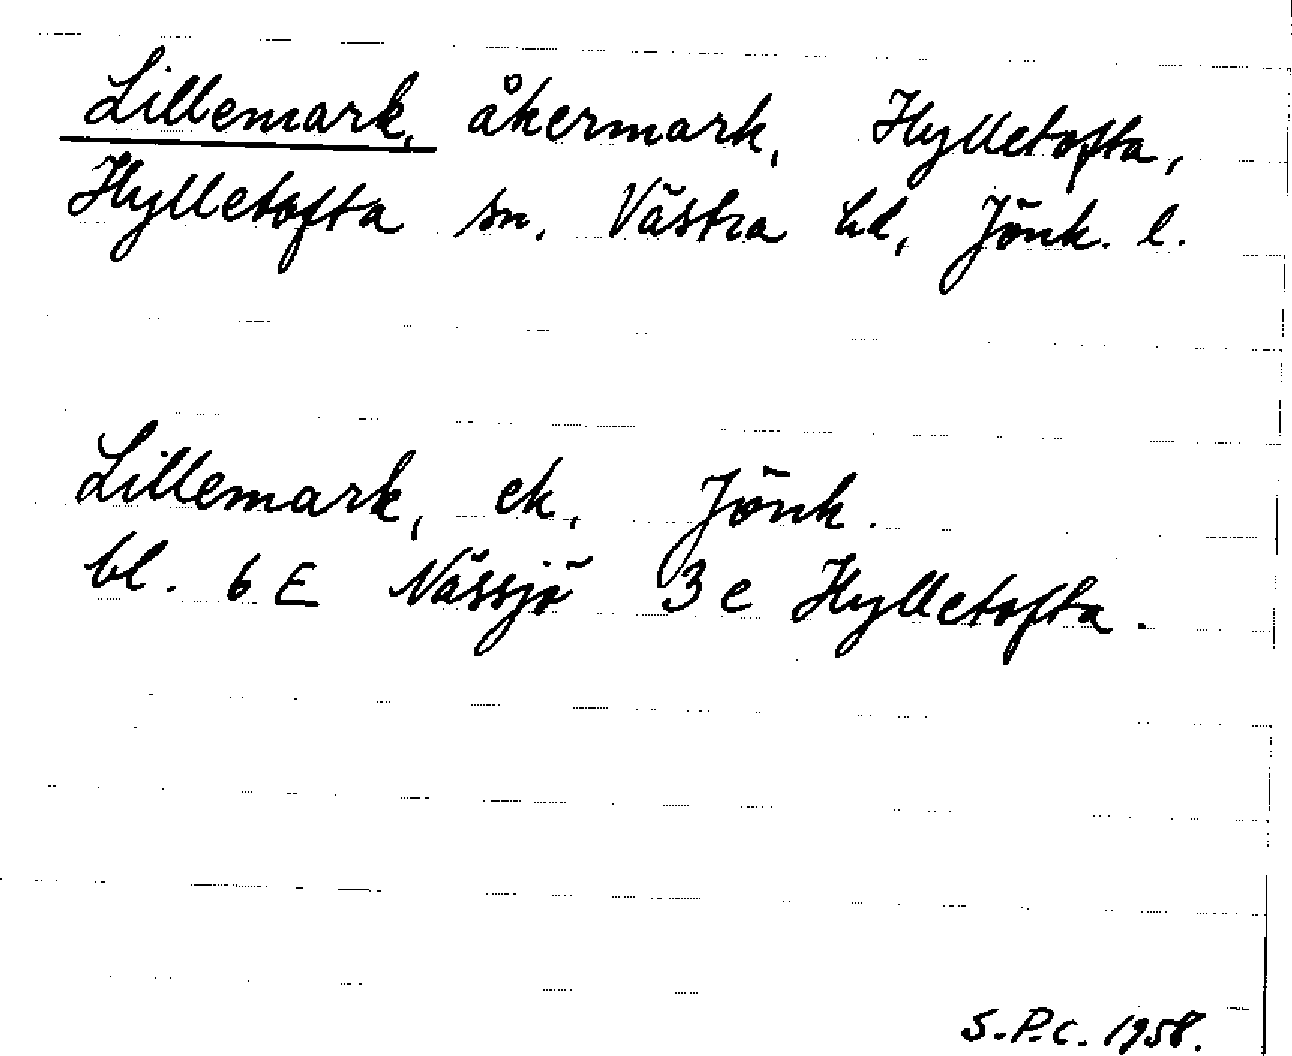 Lillemark, åkermark, Hylletofta,
Hylletofta sn. Västra hd, Jönk. l.
Lillemark, ek, Jönk.
bl. 6 E Nässjö 3 e Hylletofta.
S.P.C. 1958.